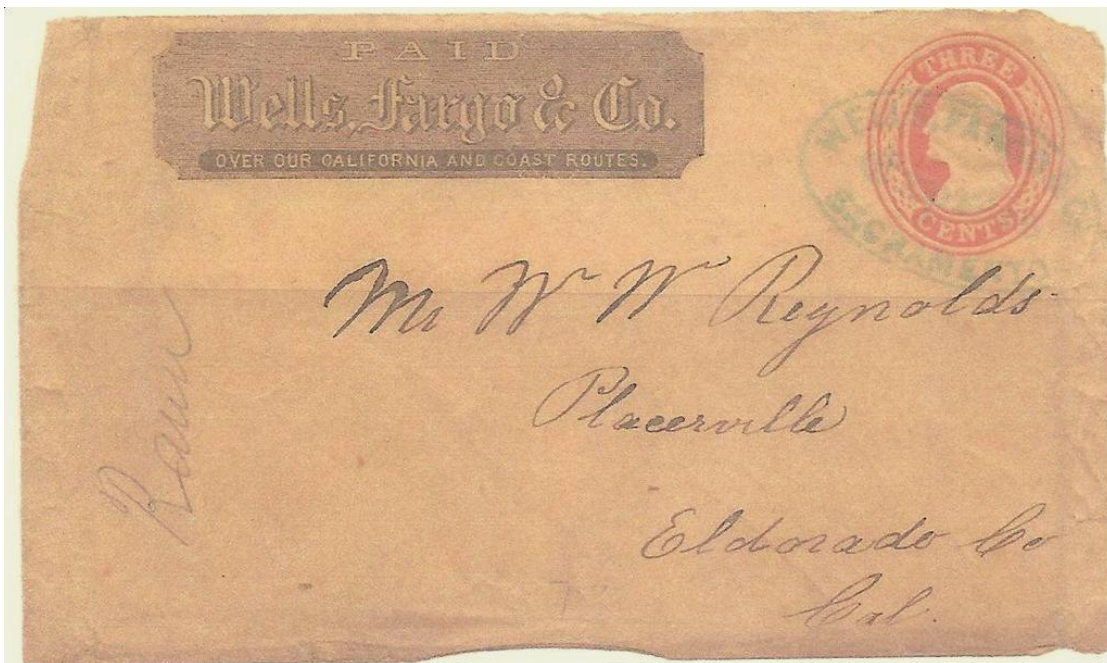 PAID
Wells, Fargo & Co.
OVER OUR CALIFORNIA AND COAST ROUTES.
THREE
CENTS
WELLS, FARGO & CO
SACRAMENTO
Mr W W Reynolds
Placerville
Eldorado Co
Cal.